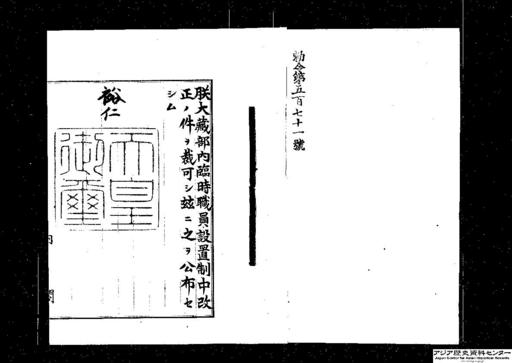 勅令第五百七十一號
朕大藏部內臨時職員設置制中改
正ノ件ヲ裁可シ玆ニ之ヲ公布セ
シム
裕仁
天皇
御璽
內
閣
アジア歴史資料センター
Japan Center for Asian Historical Records